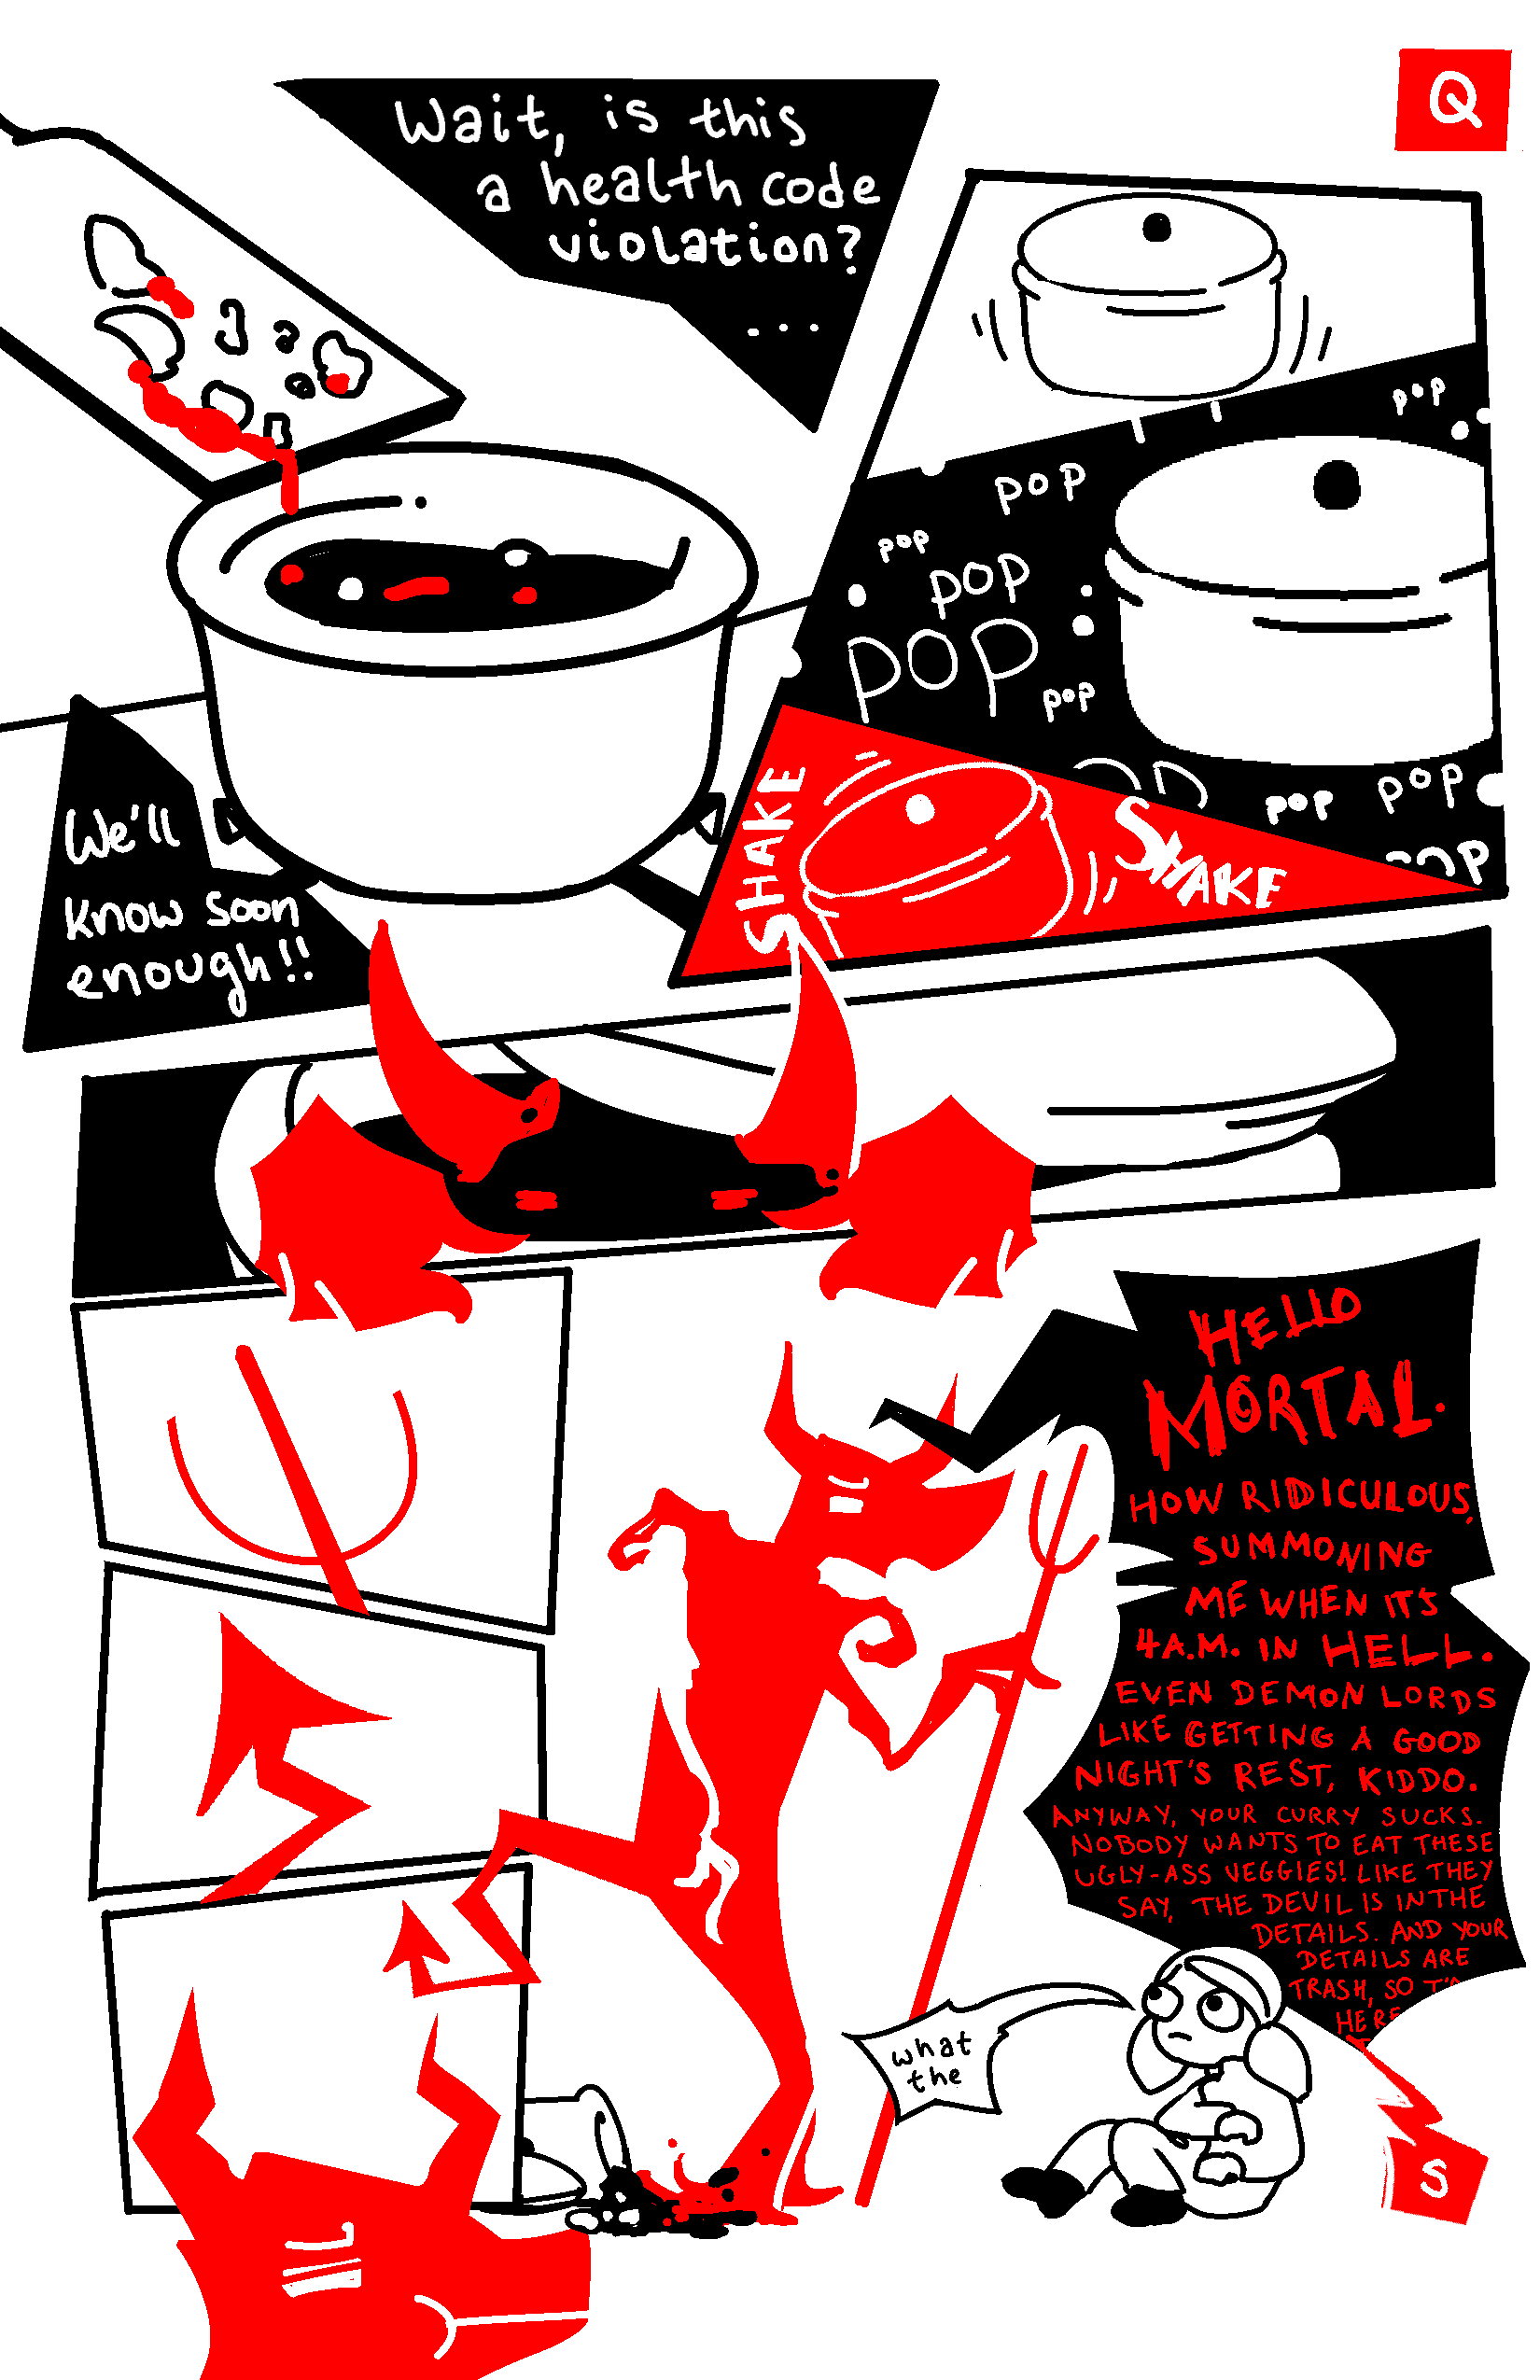 Q
Wait, is this
a health code
violation?
...
We'll
know soon
enough!!
pop
pop
pop
pop
POP
pop
pop
pop
SHAKE
SHAKE
HELLO
MORTAL.
HOW RIDICULOUS,
SUMMONING
ME WHEN IT'S
4A.M. IN HELL.
EVEN DEMON LORDS
LIKE GETTING A GOOD
NIGHT'S REST, KIDDO.
ANYWAY, YOUR CURRY SUCKS.
NOBODY WANTS TO EAT THESE
UGLY-ASS VEGGIES! LIKE THEY
SAY, THE DEVIL IS IN THE
DETAILS. AND YOUR
DETAILS ARE
TRASH, SO
HERE
what
the
S